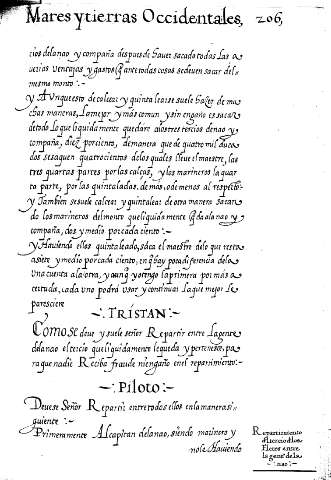 Mares y tierras Occidentales, 206,
cios dela nao y compañia despues de hauer sacado todas las a
uerias ventajas y gastos q̃ ante todas cosas se deuen sacar del
mesmo monto :~
y Aunque esto de calcar y quintalearse suele hazer de mu
chas maneras, La mejor y mas comun y sin engaño es saca
de todo lo que liquidamente quedare a los tres tercios de nao y
compañia, diez por ciento, de manera que de quatro mil duca
dos se saquen quatrocientos de los quales lleue el maestre, las
tres quartas partes por las calças, y los marineros la quar
ta parte, por las quintaladas. de mas o de menos al respecto~
y Tambien se suele calcar y quintalear de otra manera sacan
do los marineros del monto que liquidamente q̃da ala nao y
compañia, dos y medio por cada ciento :~
y Hauiendo ellos quintaleado, saca el maestre delo que resta
a siete y medio por cada ciento, en q̃ hay poca diferencia dela
Una cuenta ala otra, y aunq̃ yo tengo la primera por mas a
certada, cada uno podra usar y continuar la que mejor le
paresciere
~:~ TRISTAN :~
Como se deue y suele Señor Repartir entre la gente
dela nao el tercio que liquidamente le queda y pertenesce, pa
ra que nadie Reciba fraude ni engaño en el repartimiento:~
~:~ Piloto :~
Deuese Señor Repartir entre todos ellos en la manera si~
guiente :~
Primeramente Al capitan dela nao, siendo marinero y
no le Hauiendo
Repartimiento
del tercio de los
Fletes entre
la gente de la
nao :~